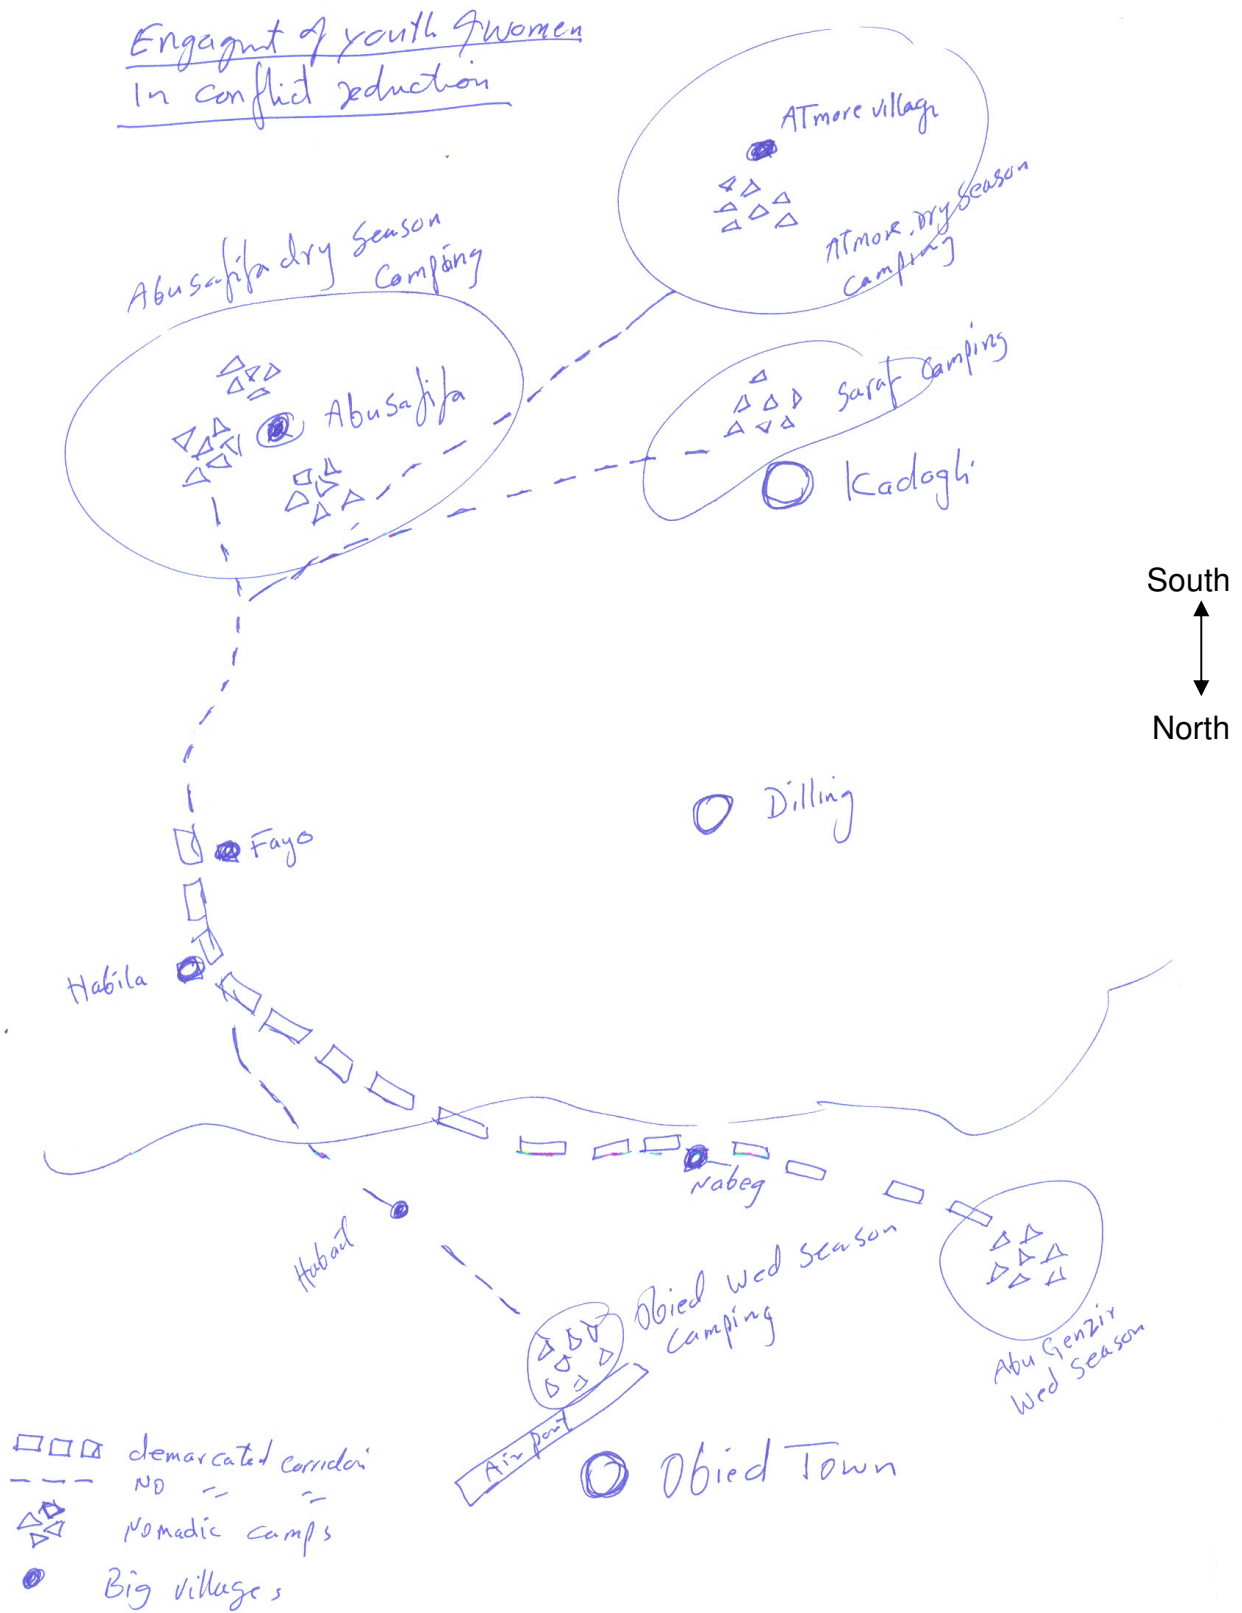 Engagmt of youth & women
In conflict reduction
ATmore village
ATmore Dry Season
camping
Abusafifa dry Season
Camping
Saraf Camping
Abusafifa
Kadogli
South
North
Dilling
Fayo
Habila
Nabeg
Habail
Obied Wed Season
Camping
Abu Genzir
Wed Season
Air port
Obied Town
demarcated corridori
NO " "
Nomadic camps
Big villages